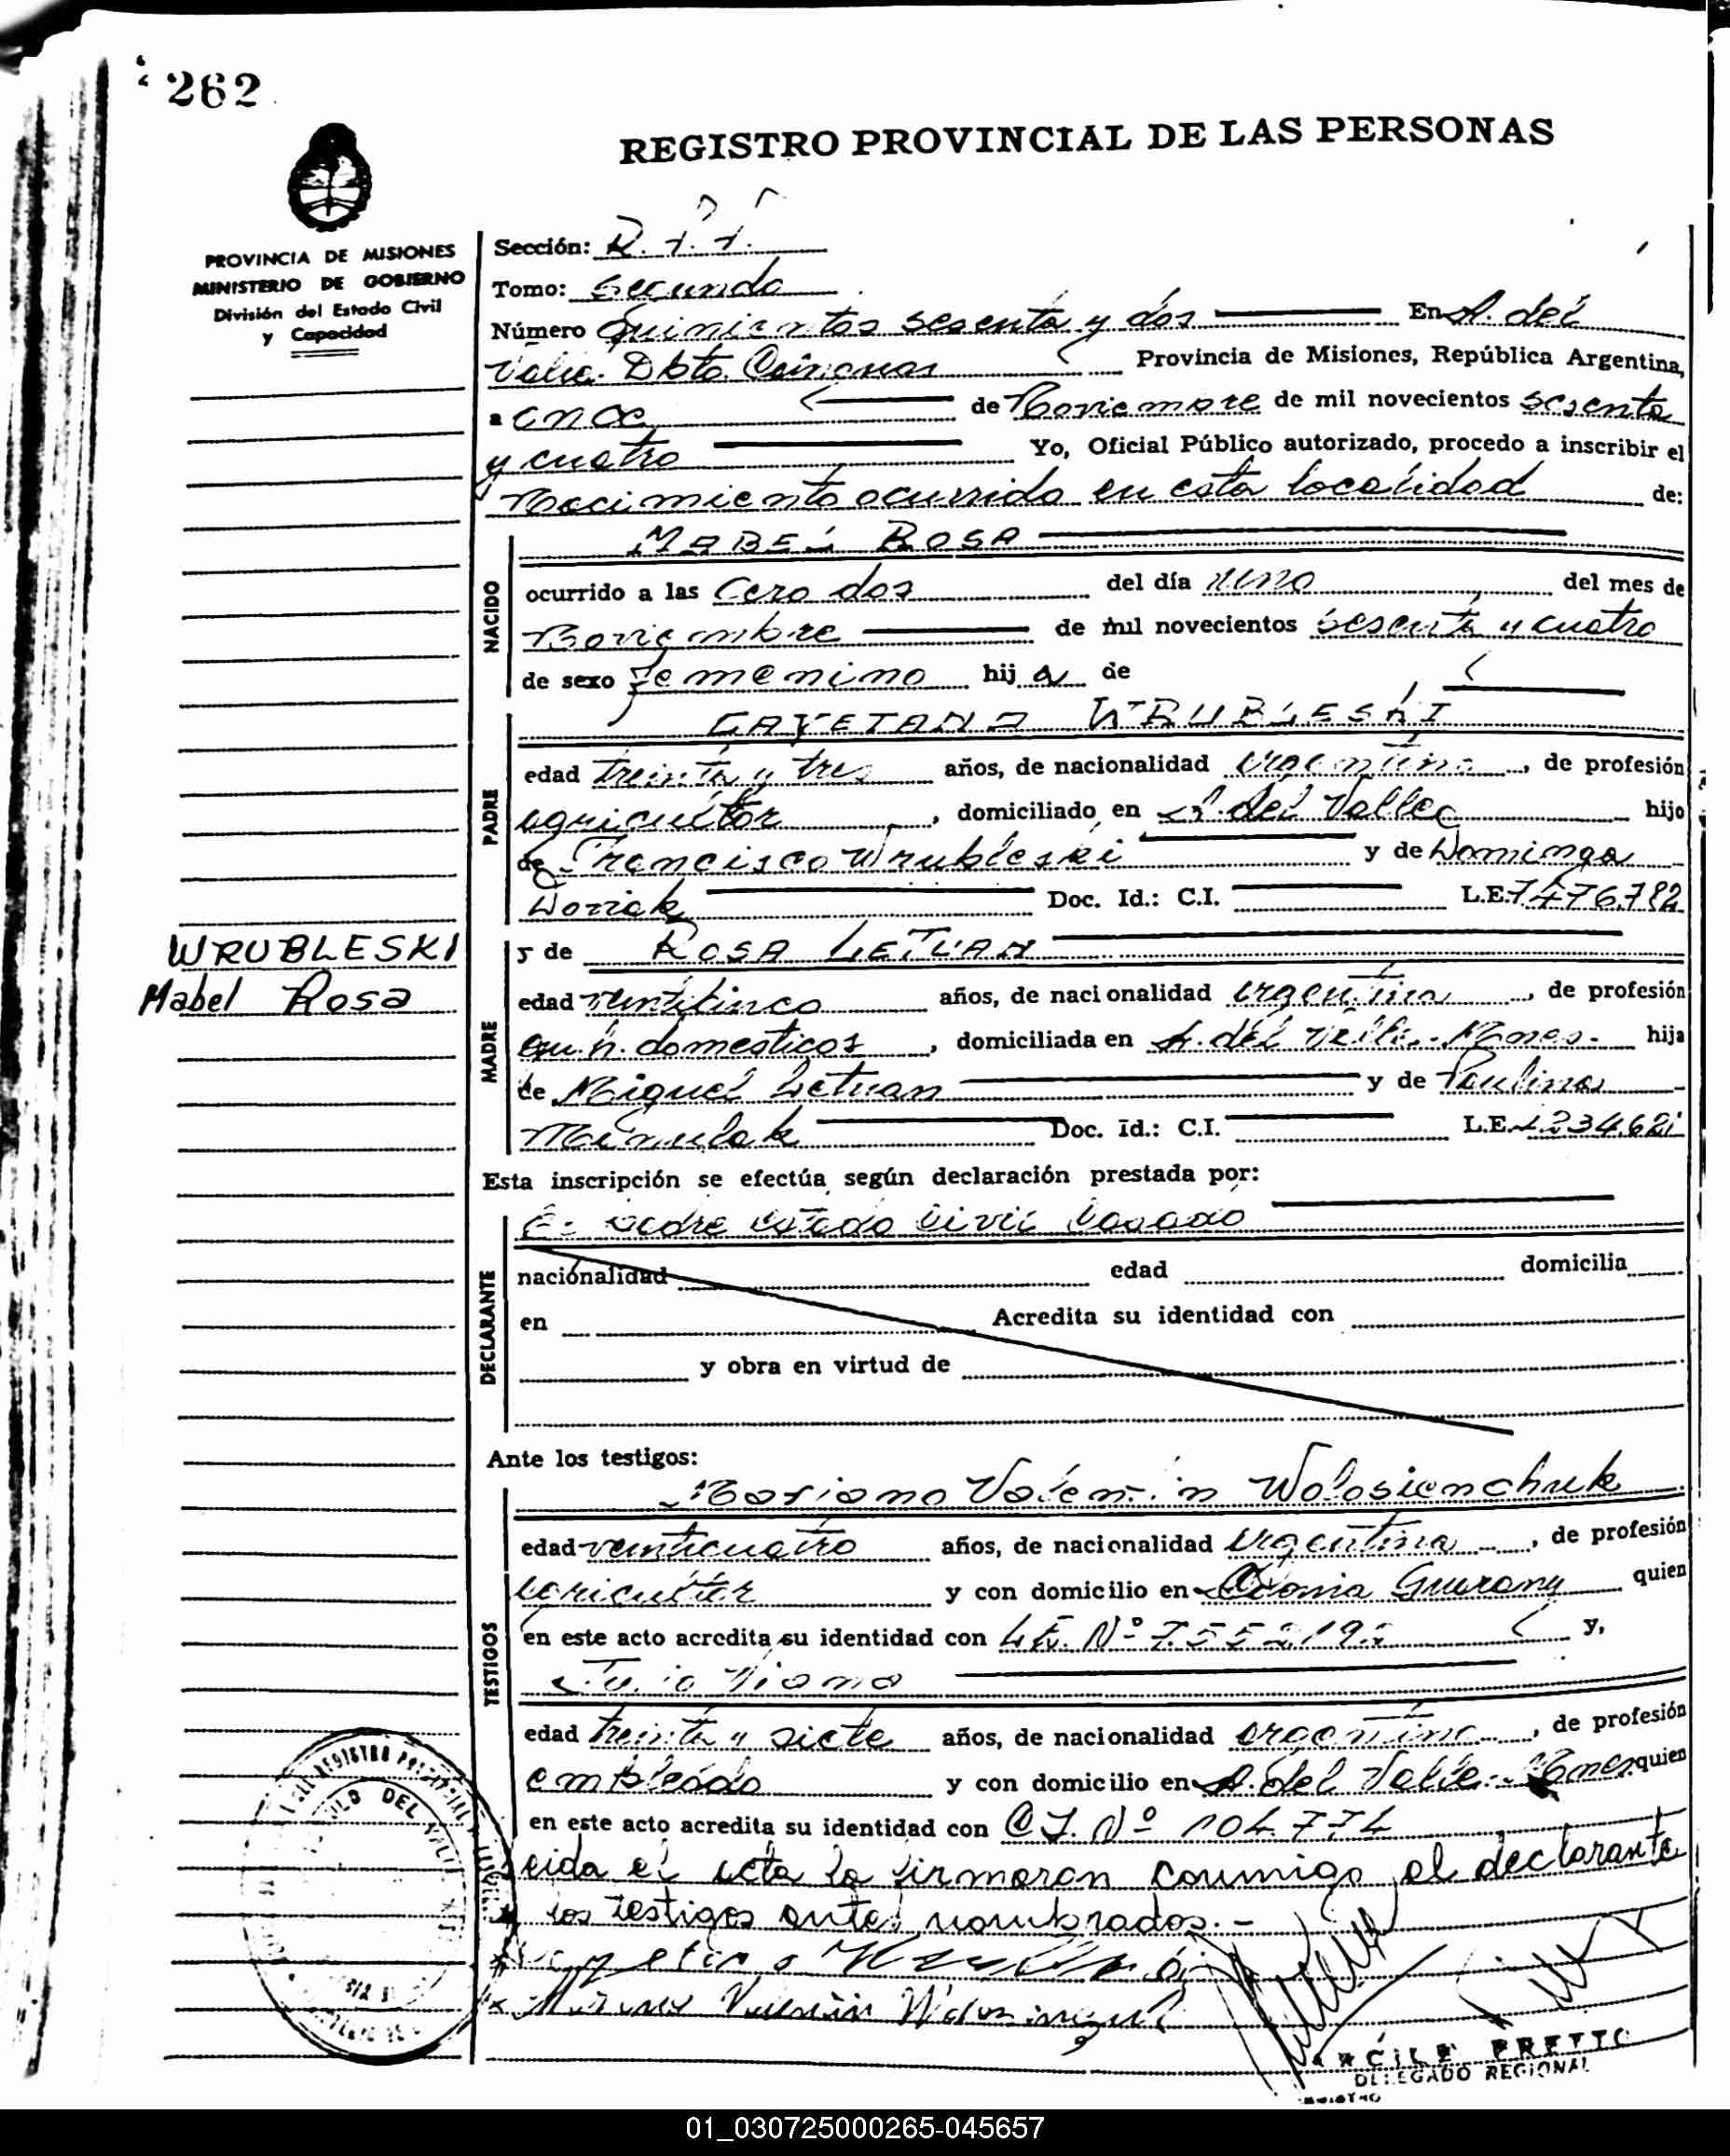 262
REGISTRO PROVINCIAL DE LAS PERSONAS
PROVINCIA DE MISIONES
MINISTERIO DE GOBIERNO
División del Estado Civil
y Capacidad
Sección:
Tomo: Segundo
Número Quinientos sesenta y dos En A. del
Valle. Dpto. Cainguas Provincia de Misiones, República Argentina,
a once de Noviembre de mil novecientos sesenta
y cuatro Yo, Oficial Público autorizado, procedo a inscribir el
Nacimiento ocurrido en esta localidad de:
MABEL ROSA
NACIDO
ocurrido a las Cero dos del día uno del mes de
Noviembre de mil novecientos sesenta y cuatro
de sexo Femenino hij a de
CAYETANO WRUBLESKI
PADRE
edad treinta y tres años, de nacionalidad argentina, de profesión
agricultor, domiciliado en A. del Valle hijo
de Francisco Wrubleski y de Dominga
Doc. Id.: C.I. L.E. 7476.782
WRUBLESKI
Mabel Rosa
y de ROSA LETUAN
MADRE
edad veinticinco años, de nacionalidad argentina, de profesión
domesticos, domiciliada en A. del Valle. Mnes. hija
de Miguel Letuan y de Paulina
Doc. Id.: C.I. L.E.
Esta inscripción se efectúa según declaración prestada por:
El padre estado civil casado
DECLARANTE
nacionalidad edad domicilia
en Acredita su identidad con
y obra en virtud de
Ante los testigos:
Mariano Valentin Wolosienchuk
TESTIGOS
edad veinticuatro años, de nacionalidad argentina, de profesión
agricultor y con domicilio en Colonia Guarany quien
en este acto acredita su identidad con L.E. Nº y,
Julio
edad treinta y siete años, de nacionalidad argentina, de profesión
empleado y con domicilio en A. del Valle. Mnes quien
en este acto acredita su identidad con C.I. Nº 104.774
Leida el acta la firmaran conmigo el declarante
los testigos antes nombrados.-
PRETTO
DELEGADO REGIONAL
01_030725000265-045657